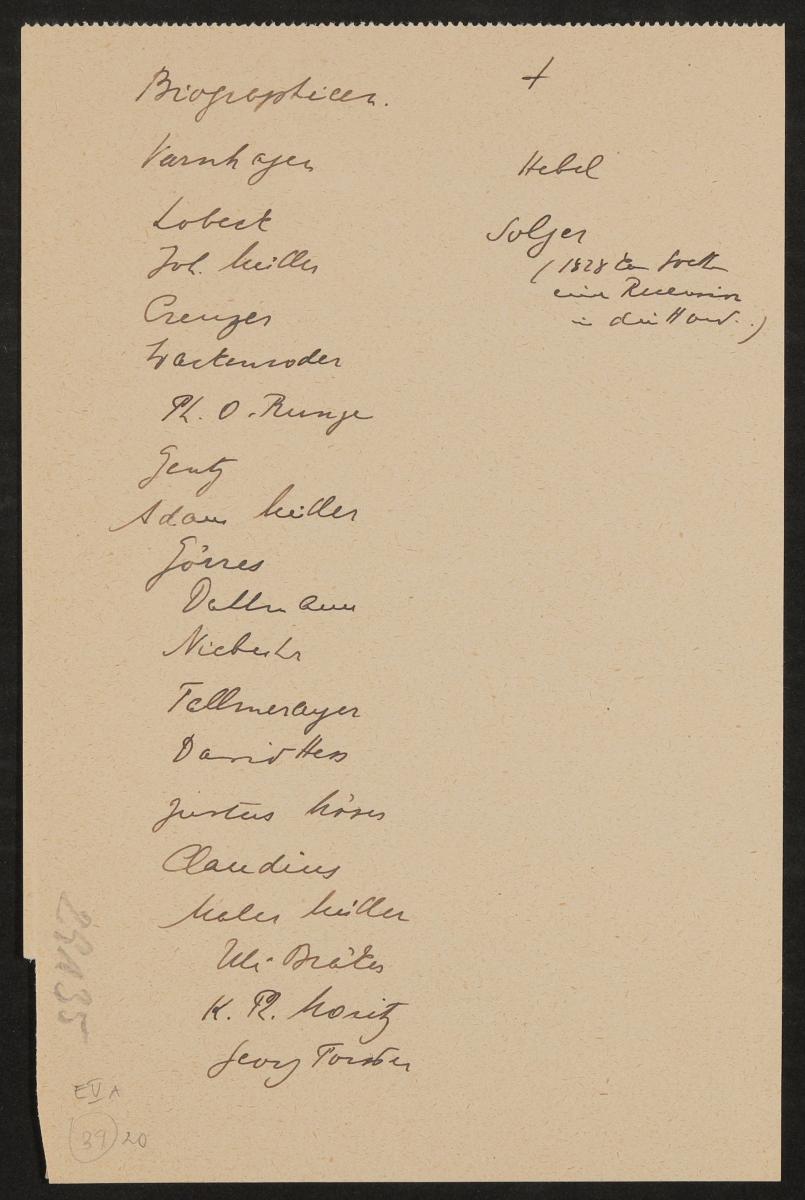 Biographieen.
+
Varnhagen
Lobeck
Joh. Müller
Creuzer
Wackenroder
Ph. O. Runge
Gentz
Adam Müller
Görres
Dallmann
Niebuhr
Fallmerayer
David Hess
Justus Möser
Claudius
Maler Müller
Uli Bräker
K. Ph. Moritz
Georg Forster
Hebel
Solger
(1828
eine Recension
in die Hand.)
EVA
39 20